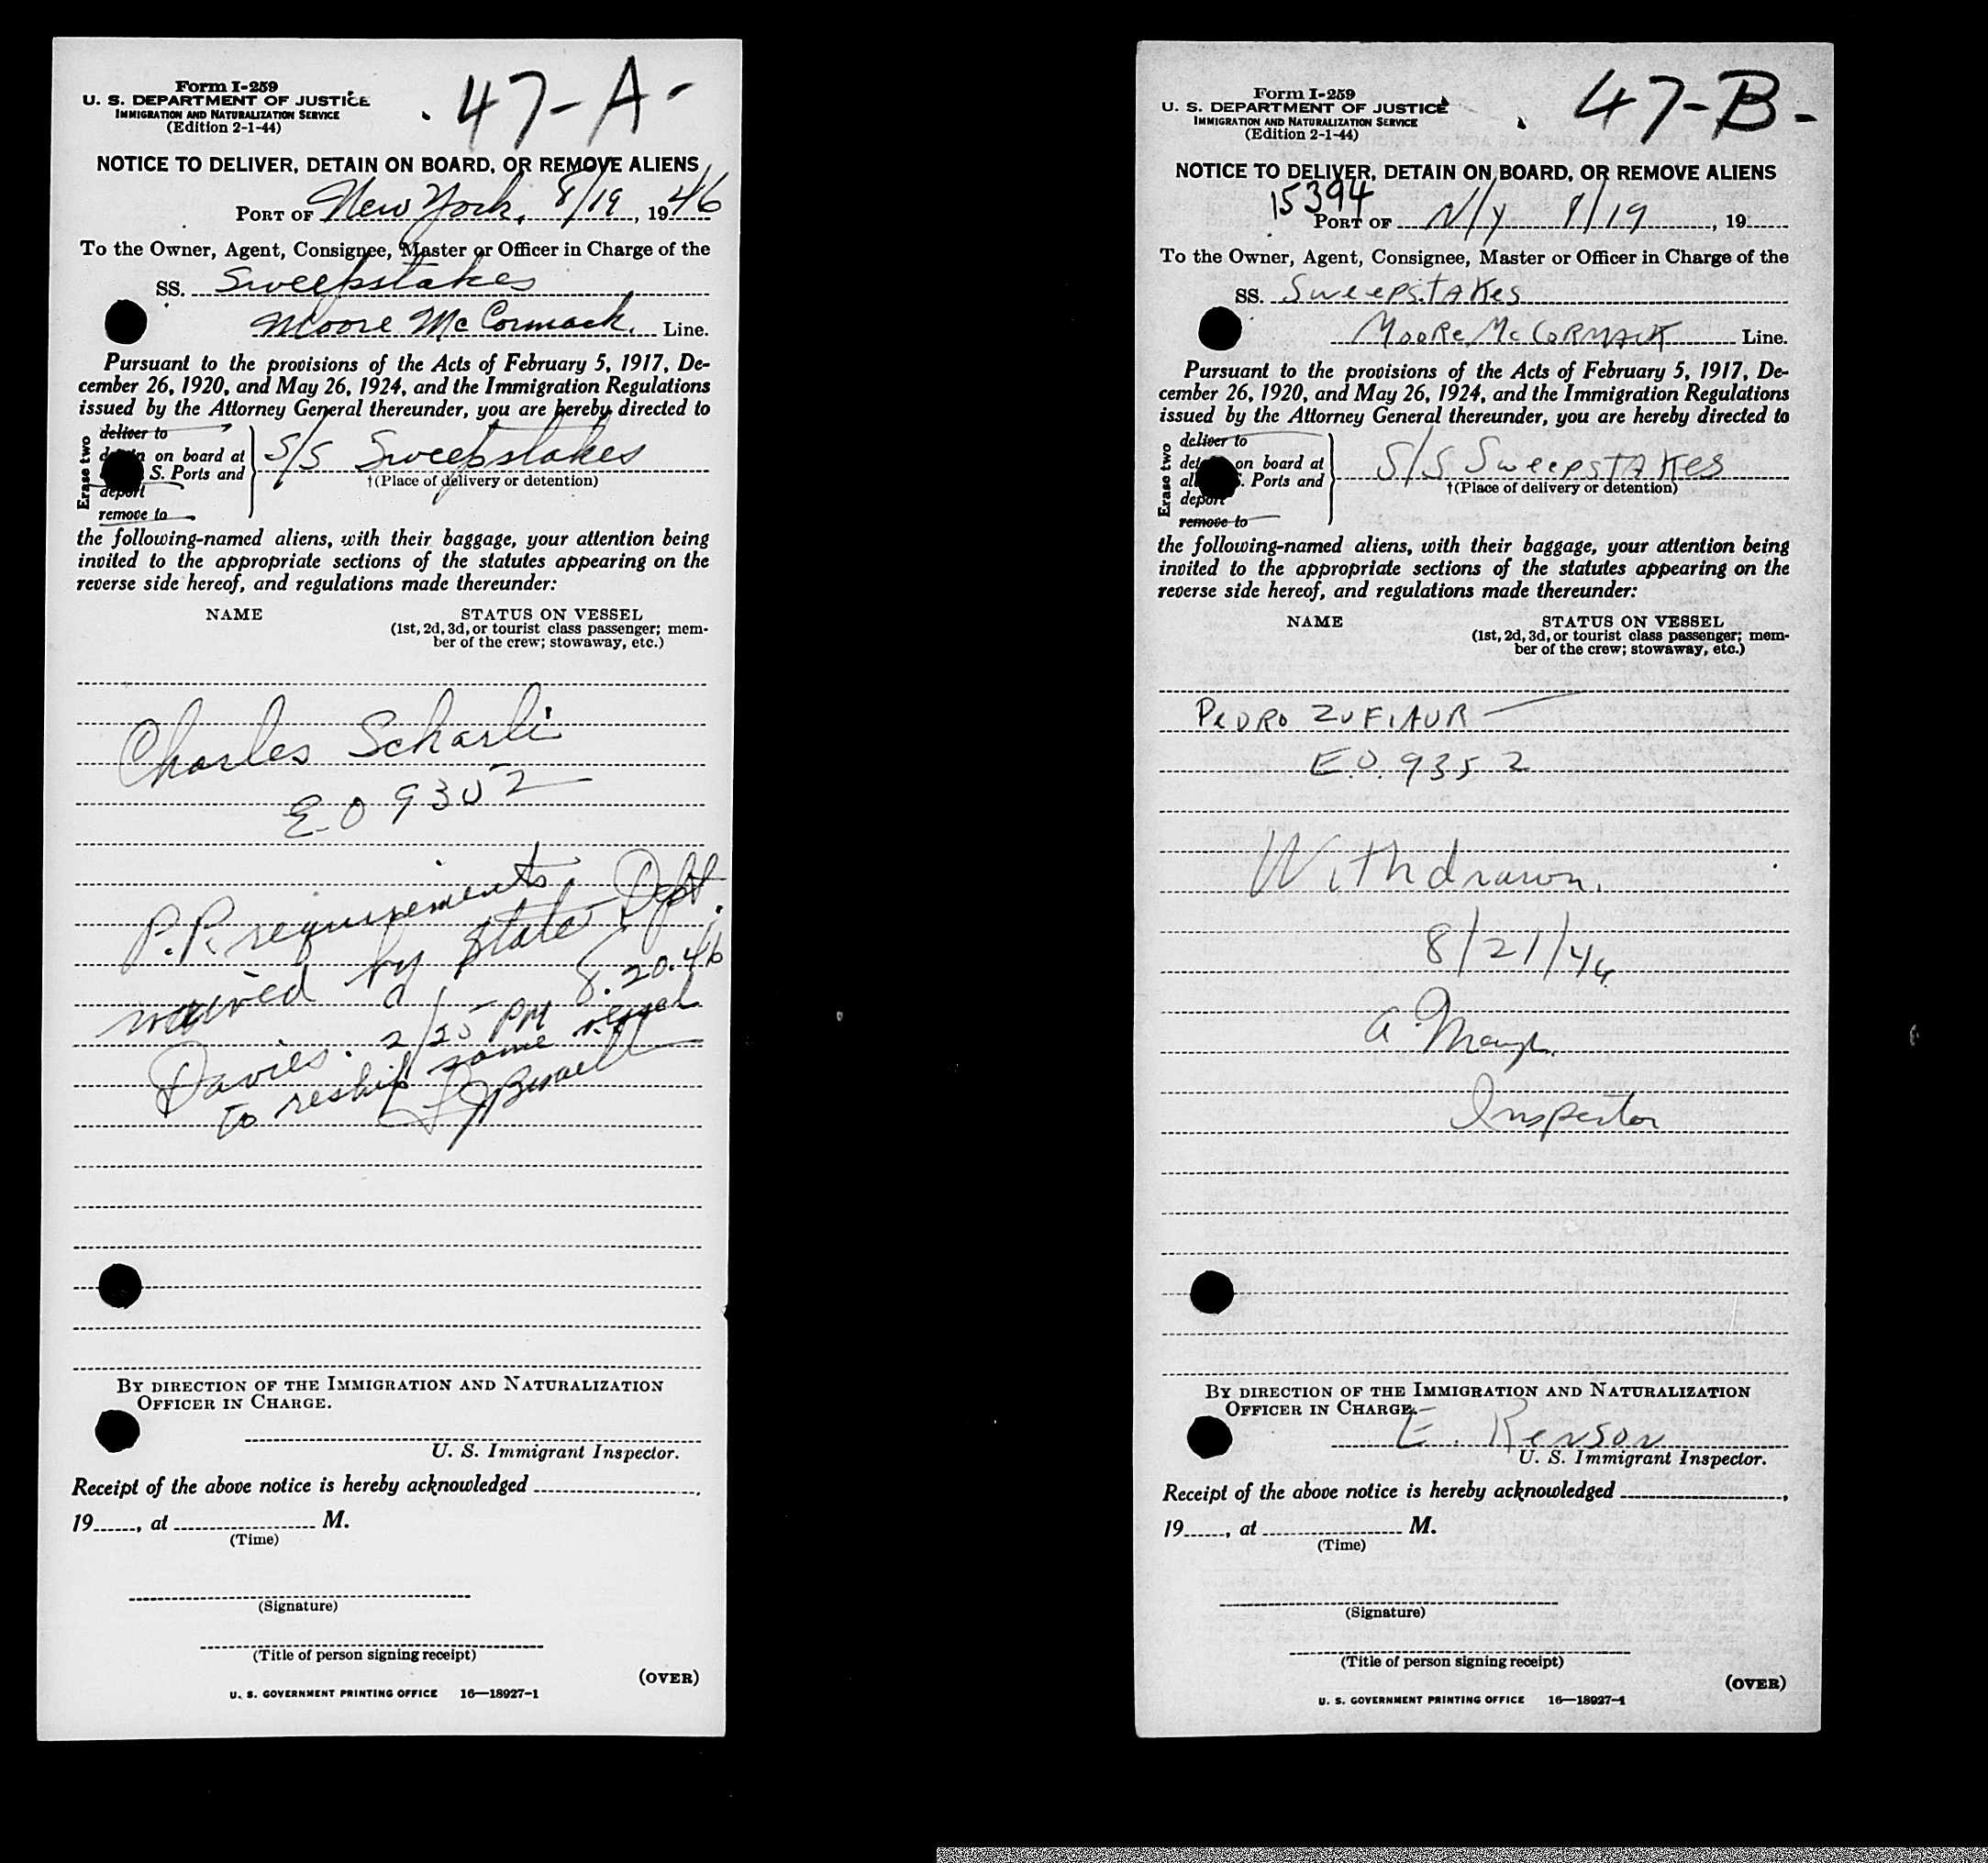 47-A-
Form I-259
U. S. DEPARTMENT OF JUSTICE
IMMIGRATION AND NATURALIZATION SERVICE
(Edition 2-1-44)
NOTICE TO DELIVER, DETAIN ON BOARD, OR REMOVE ALIENS
PORT OF New York, 8/19, 1946
To the Owner, Agent, Consignee, Master or Officer in Charge of the
SS. Sweepstakes
Moore McCormack. Line.
Pursuant to the provisions of the Acts of February 5, 1917, De-
cember 26, 1920, and May 26, 1924, and the Immigration Regulations
issued by the Attorney General thereunder, you are hereby directed to
Erase two
deliver to
on board at
S. Ports and
deport
remove to
S/S Sweepstakes
†(Place of delivery or detention)
the following-named aliens, with their baggage, your attention being
invited to the appropriate sections of the statutes appearing on the
reverse side hereof, and regulations made thereunder:
NAME STATUS ON VESSEL
(1st, 2d, 3d, or tourist class passenger; mem-
ber of the crew; stowaway, etc.)
Charles Scharli
E.O 9352
P.P. requirements
waived by State Dept.
8.20.46
Davies. 2/25 PM
to reship same vessel
BY DIRECTION OF THE IMMIGRATION AND NATURALIZATION
OFFICER IN CHARGE.
U. S. Immigrant Inspector.
Receipt of the above notice is hereby acknowledged
19, at M.
(Time)
(Signature)
(Title of person signing receipt)
(OVER)
U. S. GOVERNMENT PRINTING OFFICE 16—18927-1
47-B-
Form I-259
U. S. DEPARTMENT OF JUSTICE
IMMIGRATION AND NATURALIZATION SERVICE
(Edition 2-1-44)
NOTICE TO DELIVER, DETAIN ON BOARD, OR REMOVE ALIENS
15394
PORT OF N/Y 8/19, 19
To the Owner, Agent, Consignee, Master or Officer in Charge of the
SS. Sweepstakes
Moore McCormack Line.
Pursuant to the provisions of the Acts of February 5, 1917, De-
cember 26, 1920, and May 26, 1924, and the Immigration Regulations
issued by the Attorney General thereunder, you are hereby directed to
Erase two
deliver to
on board at
Ports and
deport
remove to
S/S Sweepstakes
†(Place of delivery or detention)
the following-named aliens, with their baggage, your attention being
invited to the appropriate sections of the statutes appearing on the
reverse side hereof, and regulations made thereunder:
NAME STATUS ON VESSEL
(1st, 2d, 3d, or tourist class passenger; mem-
ber of the crew; stowaway, etc.)
PEDRO ZUFIAUR
E.O. 9352
Withdrawn.
8/21/46
Inspector
BY DIRECTION OF THE IMMIGRATION AND NATURALIZATION
OFFICER IN CHARGE.
E. Renson
U. S. Immigrant Inspector.
Receipt of the above notice is hereby acknowledged
19, at M.
(Time)
(Signature)
(Title of person signing receipt)
(OVER)
U. S. GOVERNMENT PRINTING OFFICE 16—18927-1